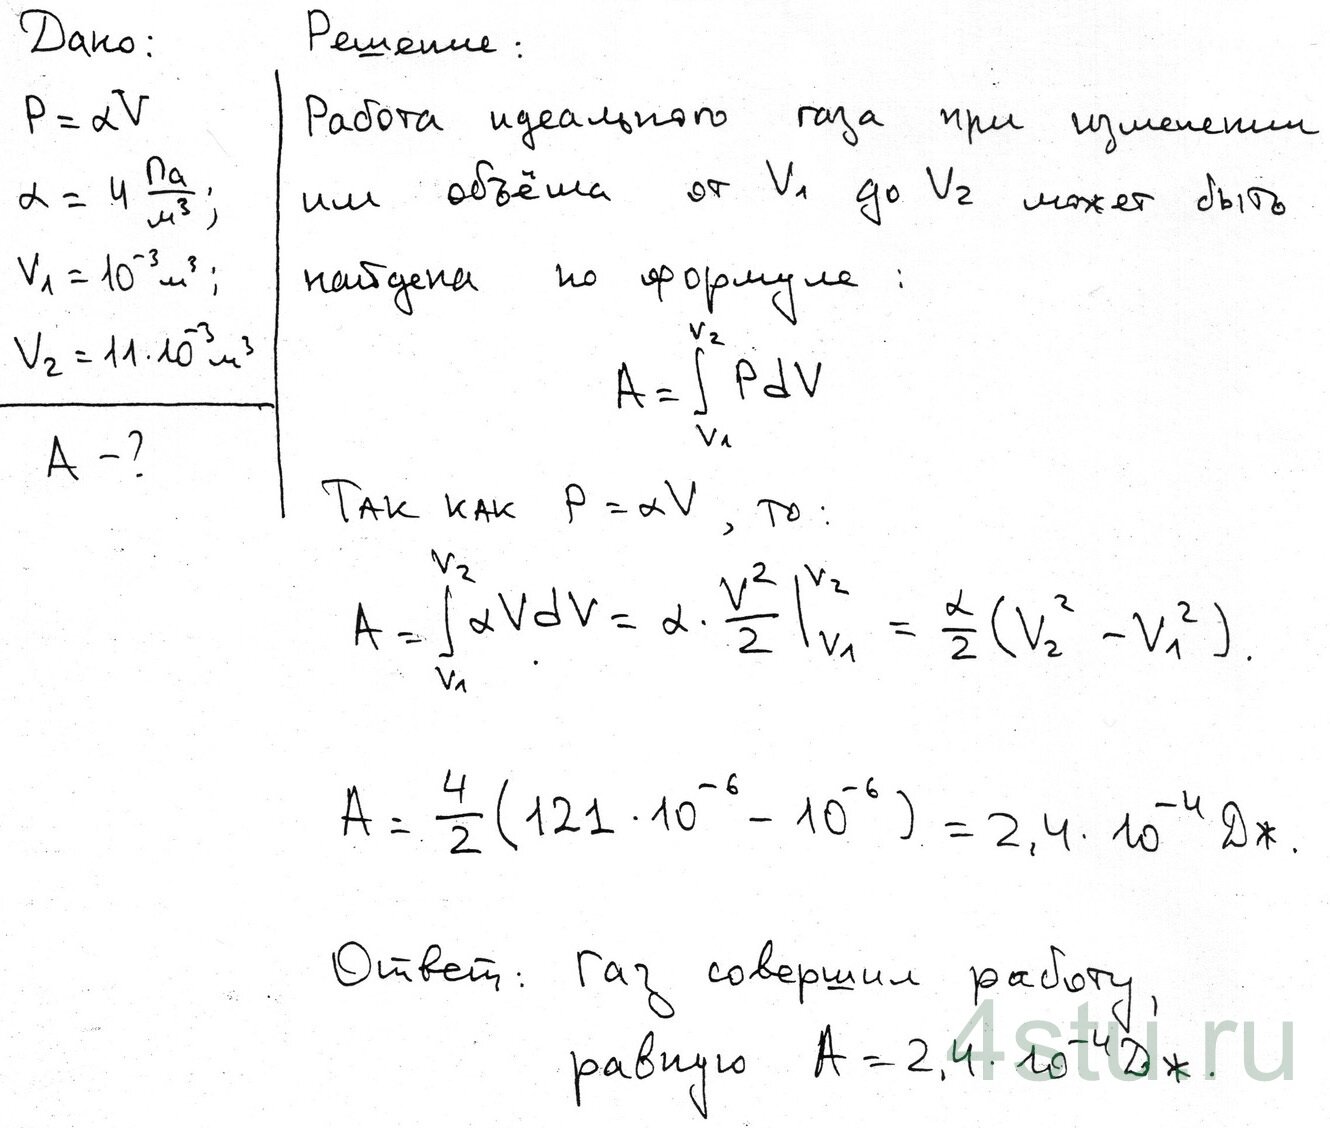 Дано:
P = αV
α = 4 Па/м³;
V₁ = 10⁻³ м³;
V₂ = 11·10⁻³ м³
A - ?
Решение:
Работа идеального газа при изменении
им объёма от V₁ до V₂ может быть
найдена по формуле:
A = ∫_{V₁}^{V₂} P dV
Так как P = αV, то:
A = ∫_{V₁}^{V₂} αV dV = α · V²/2 |_{V₁}^{V₂} = α/2 (V₂² - V₁²).
A = 4/2 (121 · 10⁻⁶ - 10⁻⁶) = 2,4 · 10⁻⁴ Дж.
Ответ: газ совершил работу,
равную A = 2,4 · 10⁻⁴ Дж.
4stu.ru